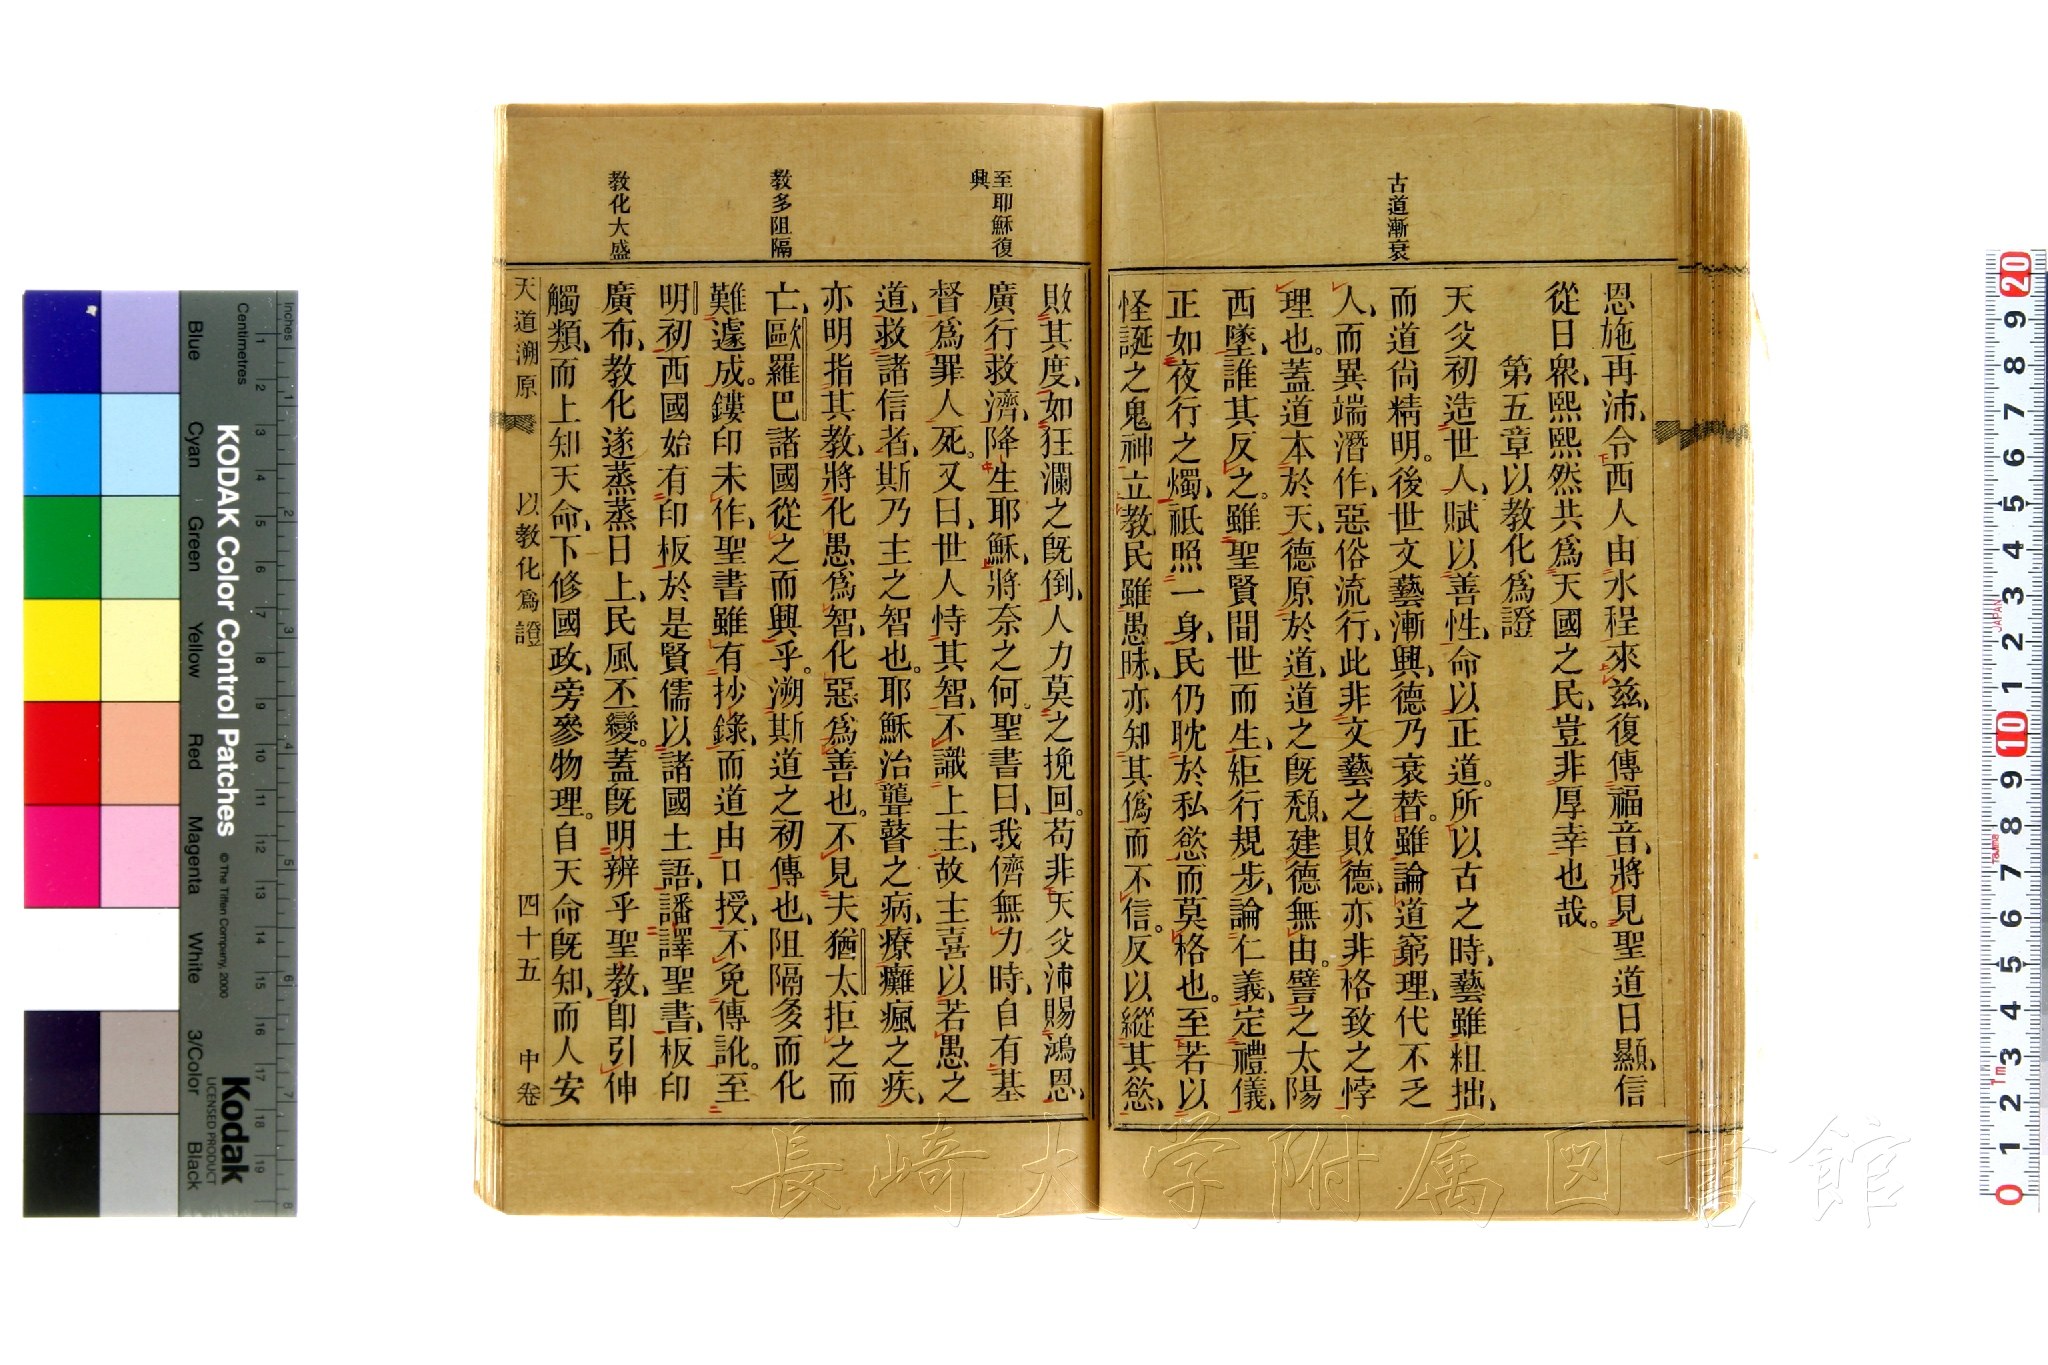 古道漸衰
恩施再沛、令西人由水程來茲、復傳福音、將見聖道日顯、信
從日衆、熙熙然共爲天國之民、豈非厚幸也哉。
第五章以教化爲證
天父初造世人、賦以善性、命以正道。所以古之時、藝雖粗拙、
而道尙精明。後世文藝漸興、德乃衰替。雖論道窮理、代不乏
人、而異端潛作、惡俗流行、此非文藝之敗德、亦非格致之悖
理也。蓋道本於天、德原於道、道之旣頹、建德無由。譬之太陽
西墜、誰其反之。雖聖賢間世而生、矩行規步、論仁義、定禮儀、
正如夜行之燭、祇照一身、民仍耽於私慾而莫格也。至若以
怪誕之鬼神立教、民雖愚昧、亦知其僞而不信。反以縱其慾、
至耶穌復
興
教多阻隔
教化大盛
敗其度、如狂瀾之旣倒、人力莫之挽回。苟非天父沛賜鴻恩、
廣行救濟、降生耶穌、將奈之何。聖書曰、我儕無力時、自有基
督爲罪人死。又曰、世人恃其智、不識上主、故主喜以若愚之
道、救諸信者、斯乃主之智也。耶穌治聾瞽之病、療癱瘋之疾、
亦明指其教、將化愚爲智、化惡爲善也。不見夫猶太拒之而
亡、歐羅巴諸國從之而興乎。溯斯道之初傳也、阻隔多而化
難遽成。鏤印未作、聖書雖有抄錄、而道由口授、不免傳訛。至
明初西國始有印板、於是賢儒以諸國土語、譒譯聖書、板印
廣布、教化遂蒸蒸日上、民風丕變。蓋旣明辨乎聖教、卽引伸
觸類、而上知天命、下修國政、旁參物理。自天命旣知、而人安
天道溯原
以教化爲證
四十五
中卷
長崎大学附属図書館
KODAK Color Control Patches
©The Tiffen Company, 2000
Kodak
LICENSED PRODUCT
Inches
Centimetres
Blue
Cyan
Green
Yellow
Red
Magenta
White
3/Color
Black
1 2 3 4 5 6 7 8 9 10 11 12 13 14 15 16 17 18 19
1 2 3 4 5 6 7 8
0 1 2 3 4 5 6 7 8 9 10 1 2 3 4 5 6 7 8 9 20
JAPAN
1m